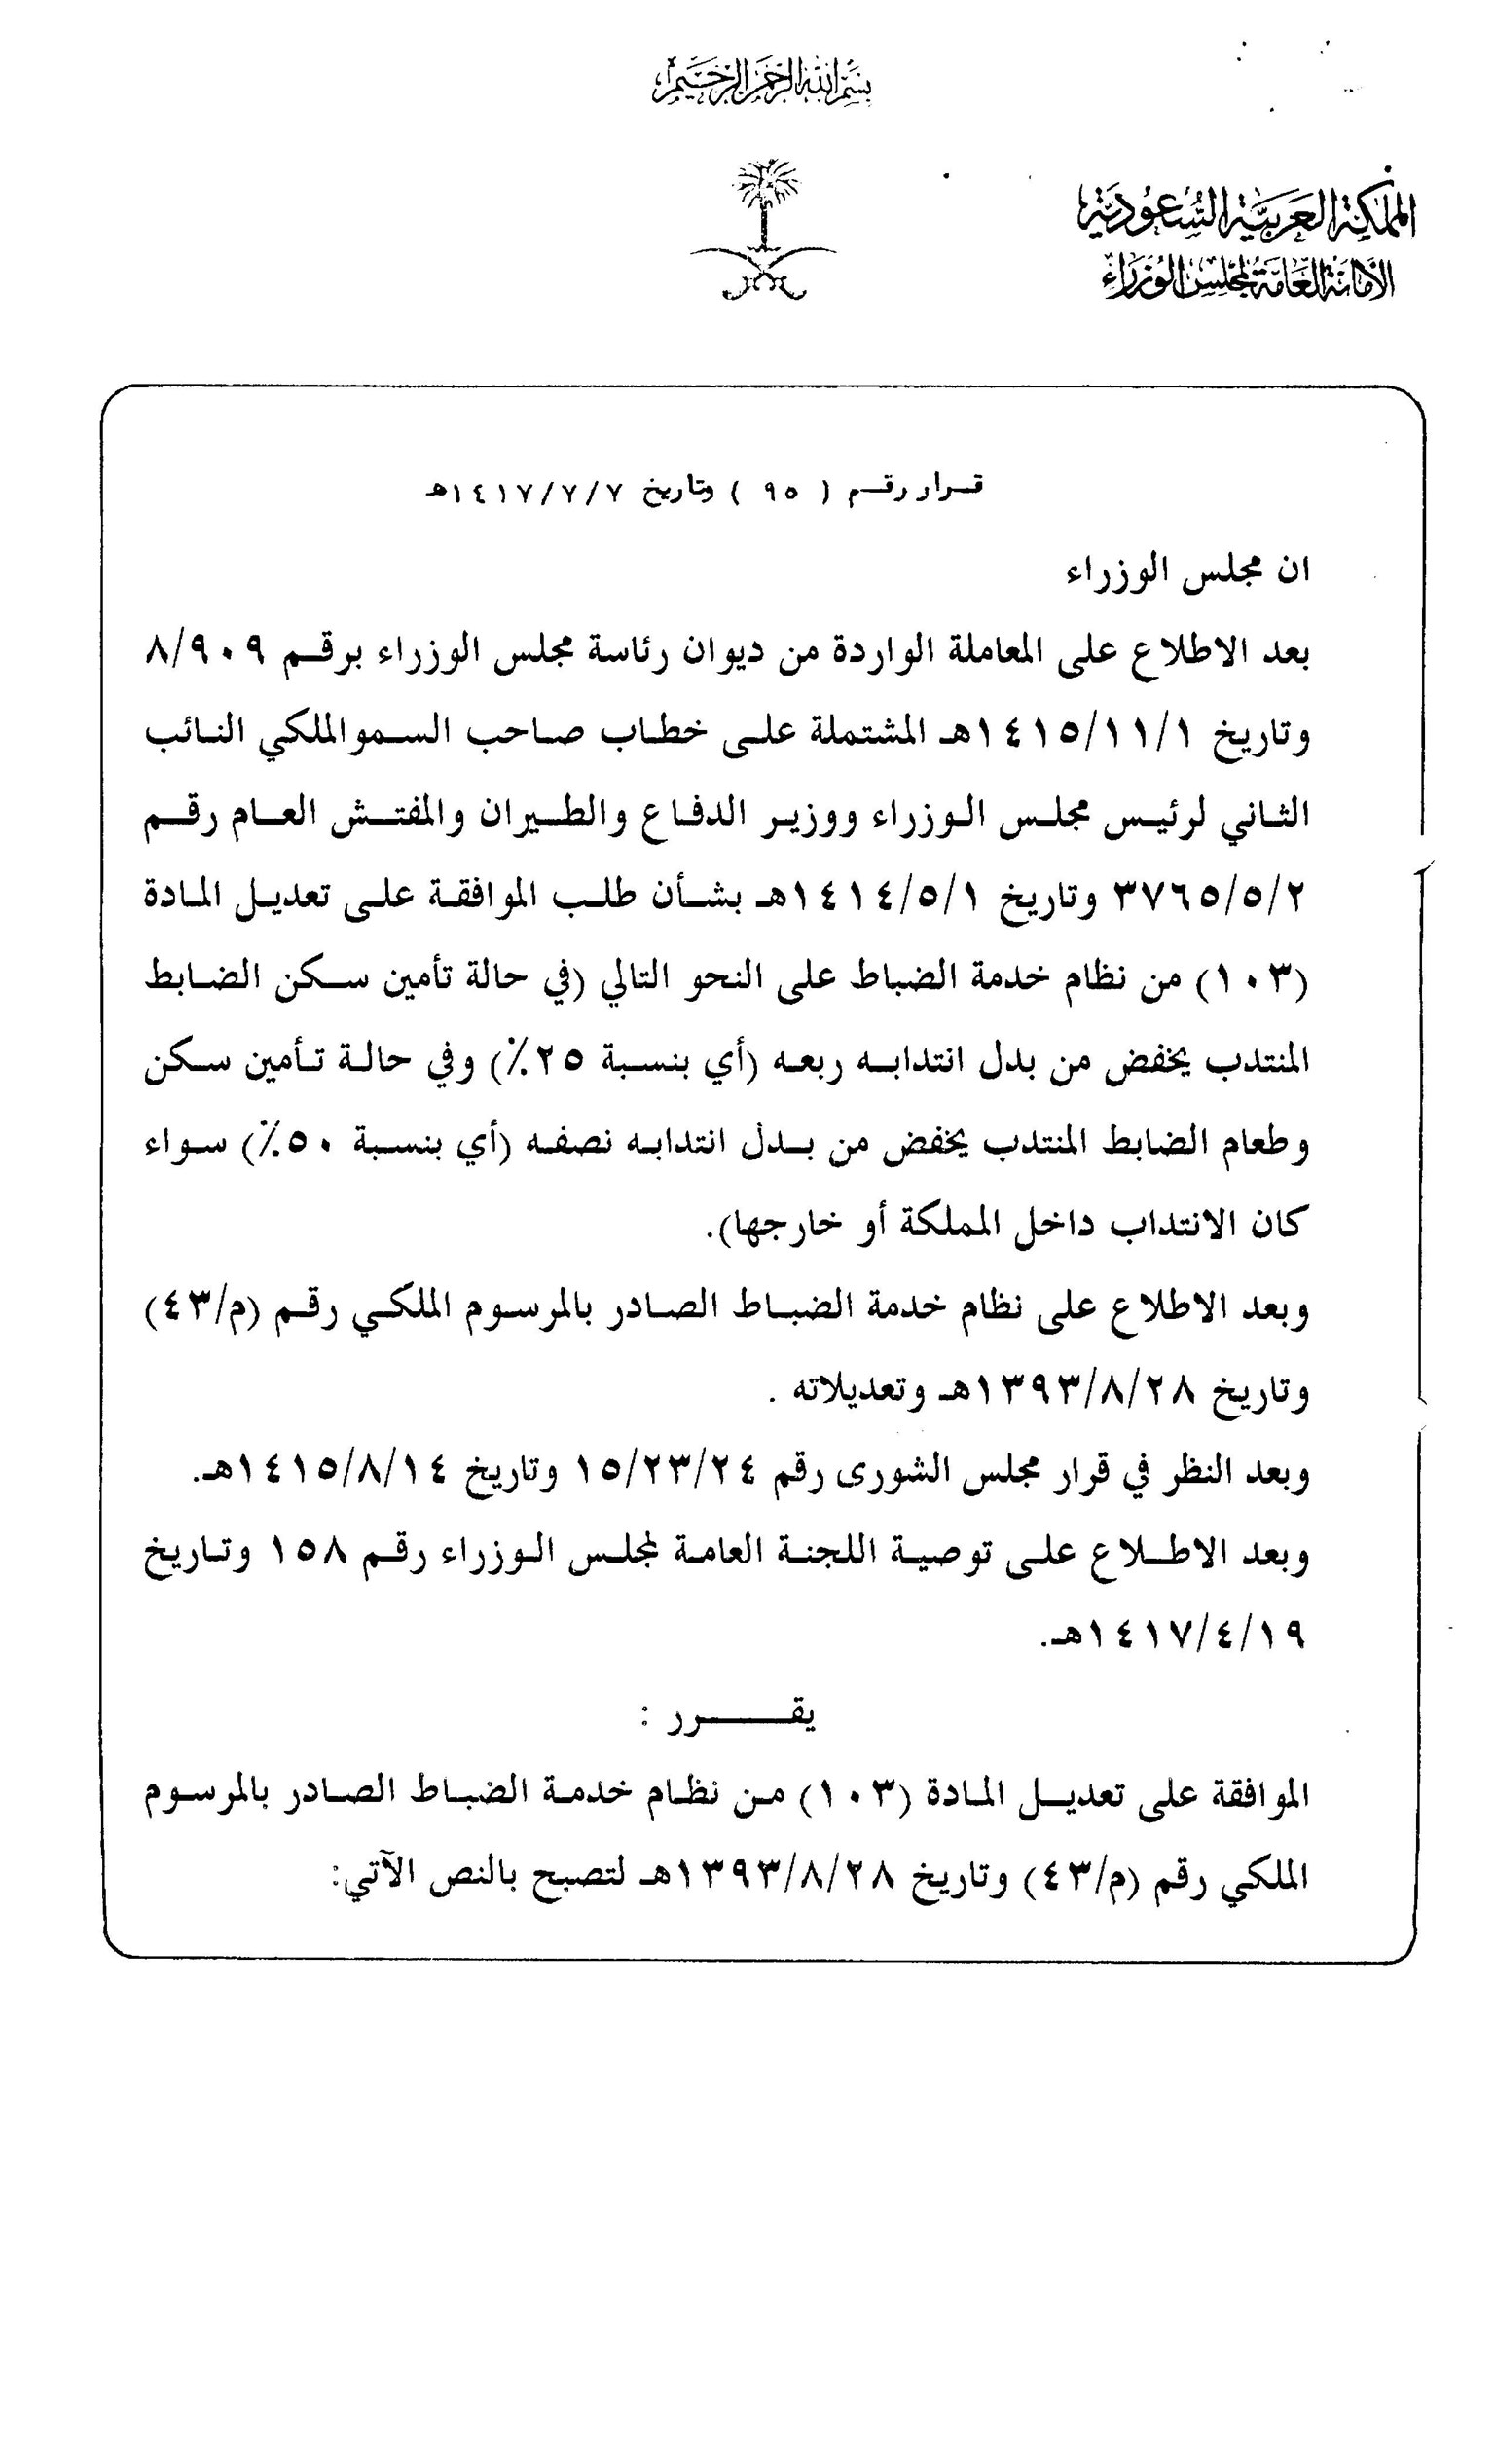 بسم الله الرحمن الرحيم
المملكة العربية السعودية
الأمانة العامة لمجلس الوزراء
قـرار رقـم ( ٩٥ ) وتاريخ ١٤١٧/٧/٧هـ
ان مجلس الوزراء
بعد الاطلاع على المعاملة الواردة من ديوان رئاسة مجلس الوزراء برقـم ٨/٩٠٩
وتاريخ ١٤١٥/١١/١هـ المشتملة علـى خطـاب صـاحب السـموالملكي النـائب
الثـاني لرئيـس مجلـس الـوزراء ووزيـر الدفـاع والطـيران والمفتـش العـام رقـم
٣٧٦٥/٥/٢ وتاريخ ١٤١٤/٥/١هـ بشـأن طلـب الموافقـة علـى تعديـل المـادة
(١٠٣) من نظام خدمة الضباط على النحو التالي (في حالة تأمين سـكن الضـابط
المنتدب يخفض من بدل انتدابـه ربعـه (أي بنسـبة ٢٥٪) وفي حالـة تـأمين سـكن
وطعام الضابط المنتدب يخفض من بـدل انتدابـه نصفـه (أي بنسـبة ٥٠٪) سـواء
كان الانتداب داخل المملكة أو خارجها).
وبعد الاطلاع على نظام خدمة الضبـاط الصـادر بالمرسـوم الملكـي رقـم (م/٤٣)
وتاريخ ١٣٩٣/٨/٢٨هـ وتعديلاته .
وبعد النظر في قرار مجلس الشورى رقم ١٥/٢٣/٢٤ وتاريخ ١٤١٥/٨/١٤هـ.
وبعد الاطـلاع علـى توصيـة اللجنـة العامـة لمجلـس الـوزراء رقـم ١٥٨ وتـاريخ
١٤١٧/٤/١٩هـ.
يقـــــرر :
الموافقة على تعديـل المـادة (١٠٣) مـن نظـام خدمـة الضبـاط الصـادر بالمرسـوم
الملكي رقم (م/٤٣) وتاريخ ١٣٩٣/٨/٢٨هـ لتصبح بالنص الآتي: